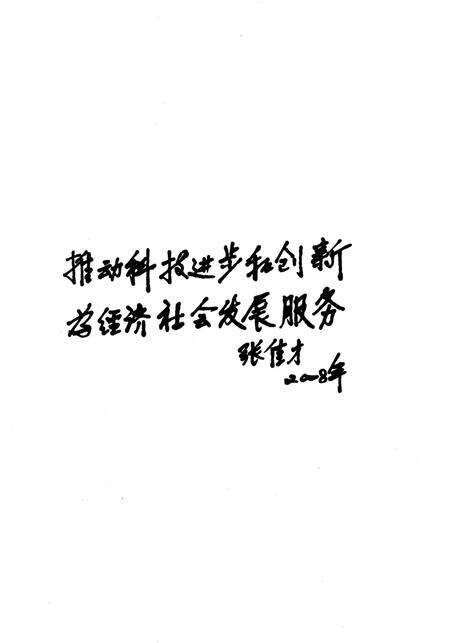 推动科技进步和创新
为经济社会发展服务
张佳才
2008年